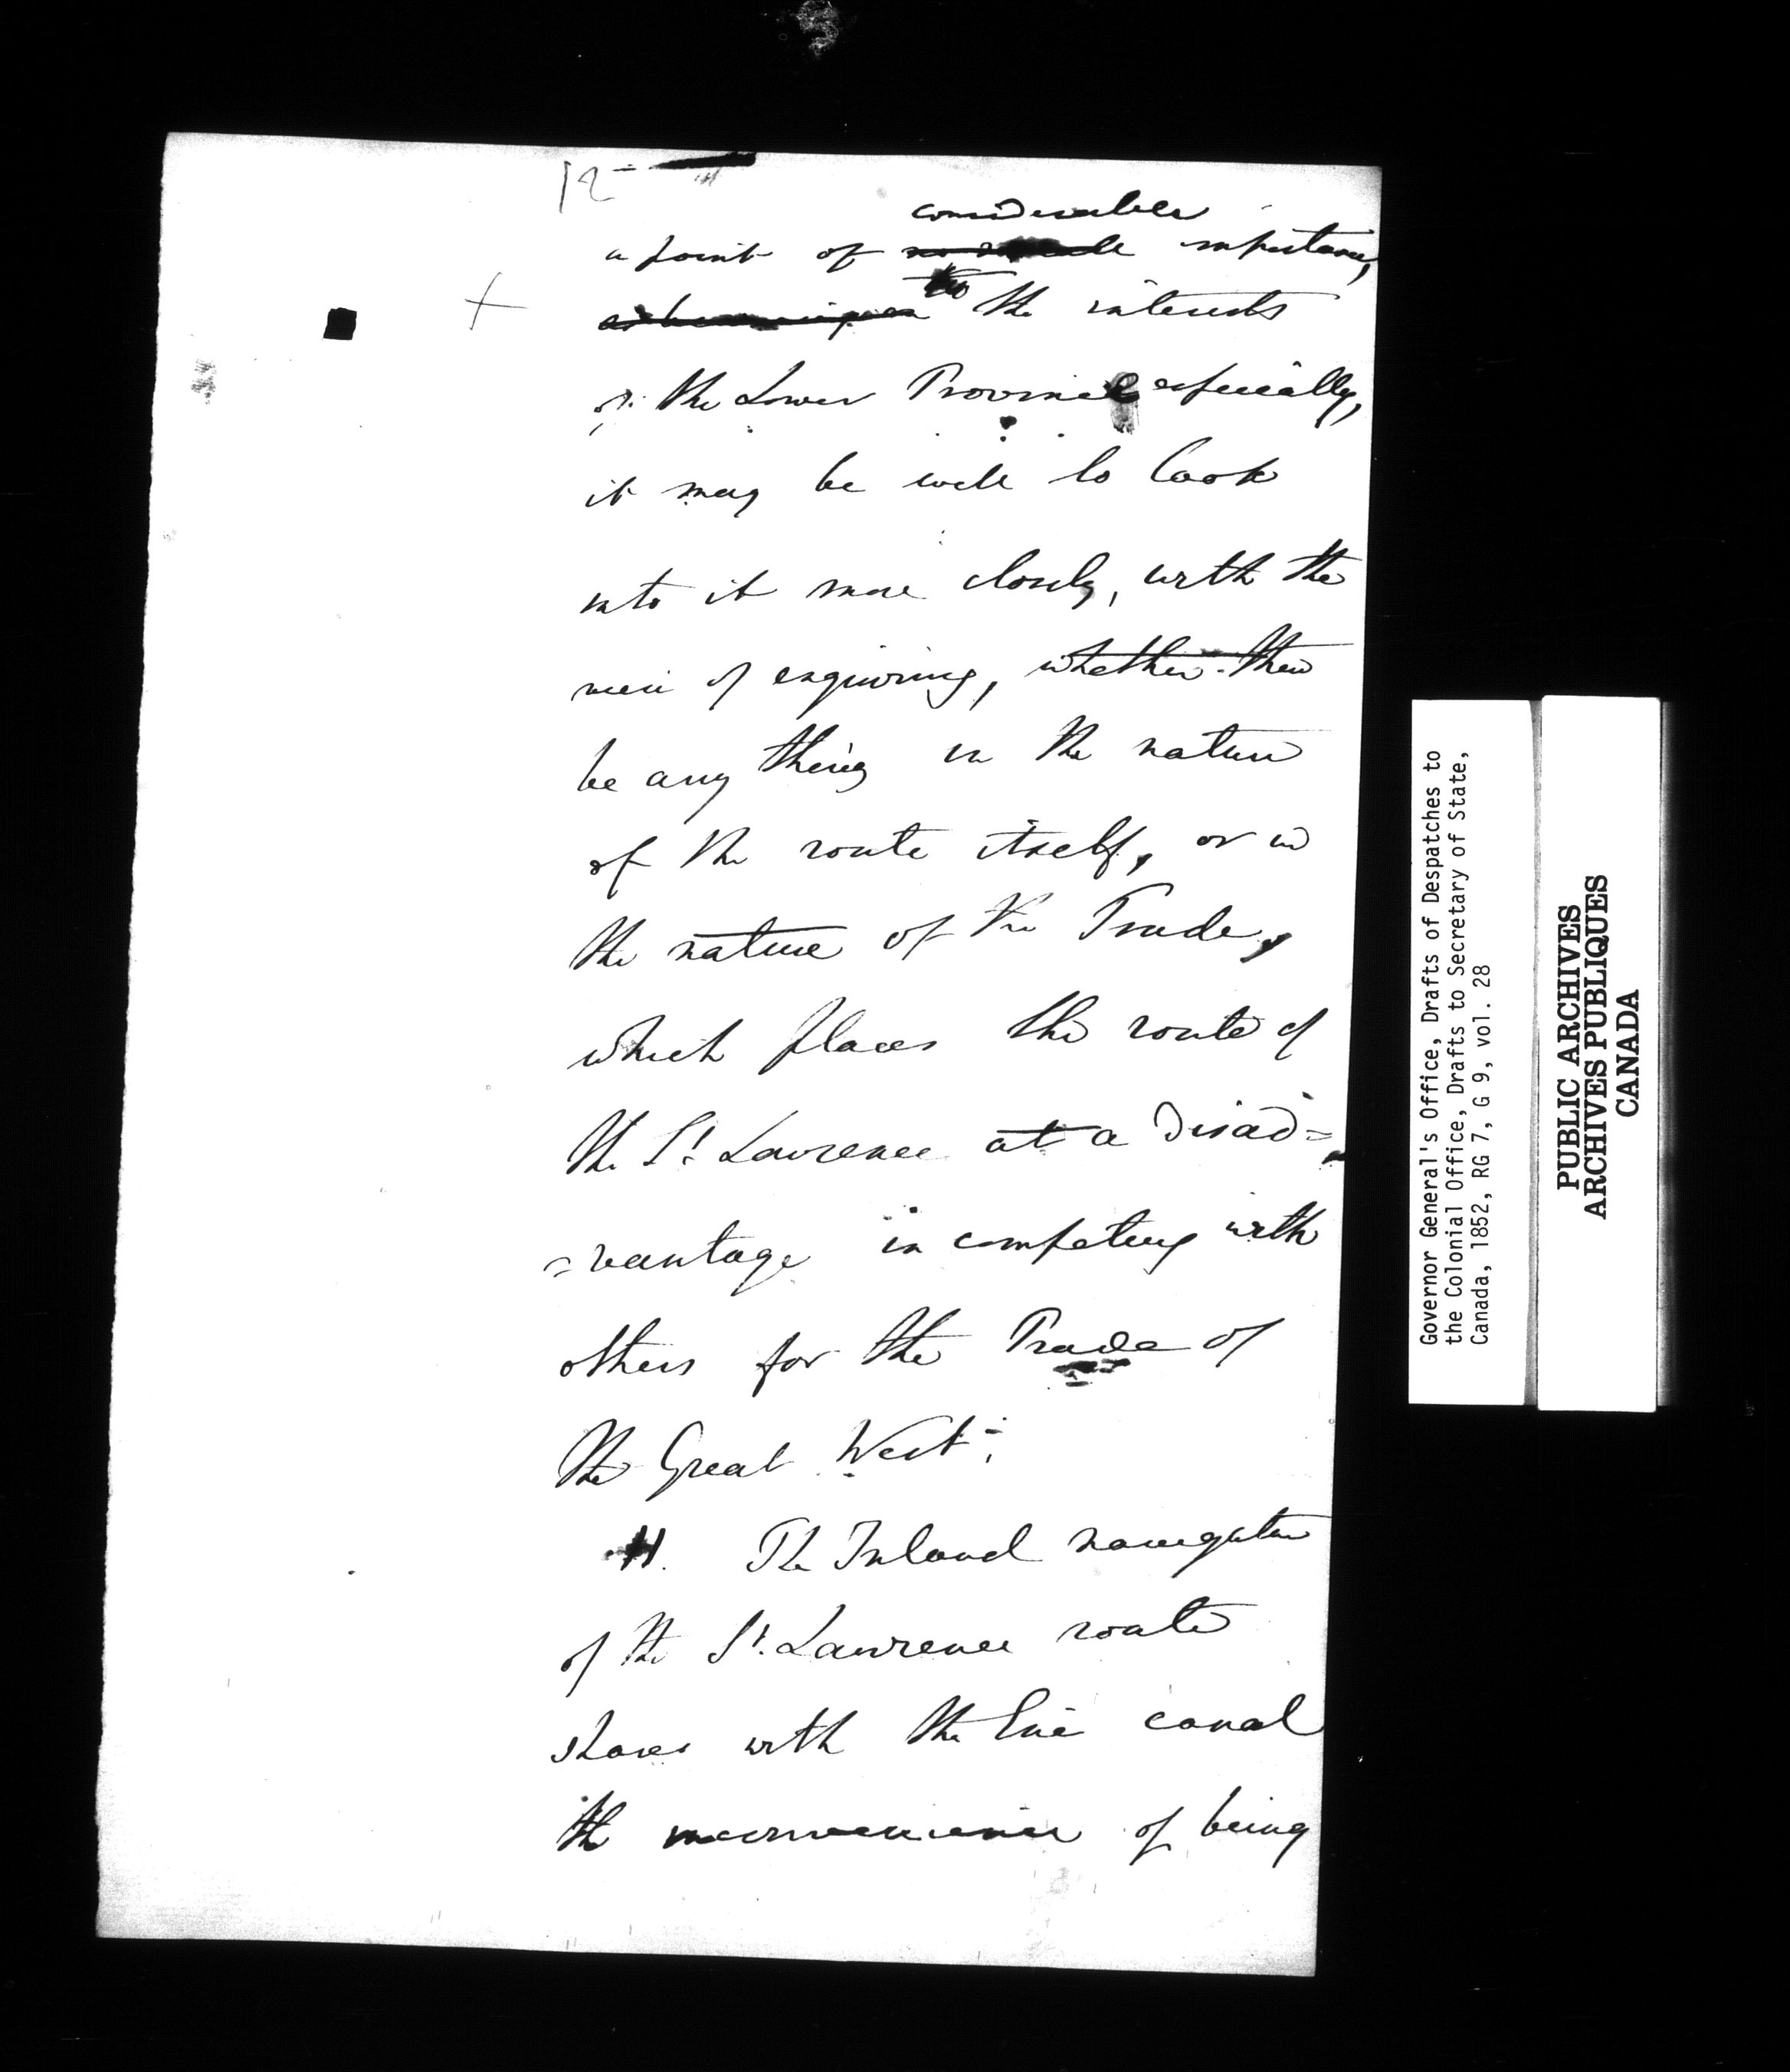 12
considerable
a point of importance,
to the interests
of the Lower Province especially,
it may be well to look
into it more closely, with the
view of enquiring, whether there
be any thing in the nature
of the route itself, or in
the nature of the Trade,
which places the route of
the St. Lawrence at a disad=
=vantage in competing with
others for the Trade of
the Great West.
11. The Inland navigation
of the St. Lawrence route
shares with the Erie canal
the inconvenience of being
Governor General's Office, Drafts of Despatches to
the Colonial Office, Drafts to Secretary of State,
Canada, 1852, RG 7, G 9, vol. 28
PUBLIC ARCHIVES
ARCHIVES PUBLIQUES
CANADA